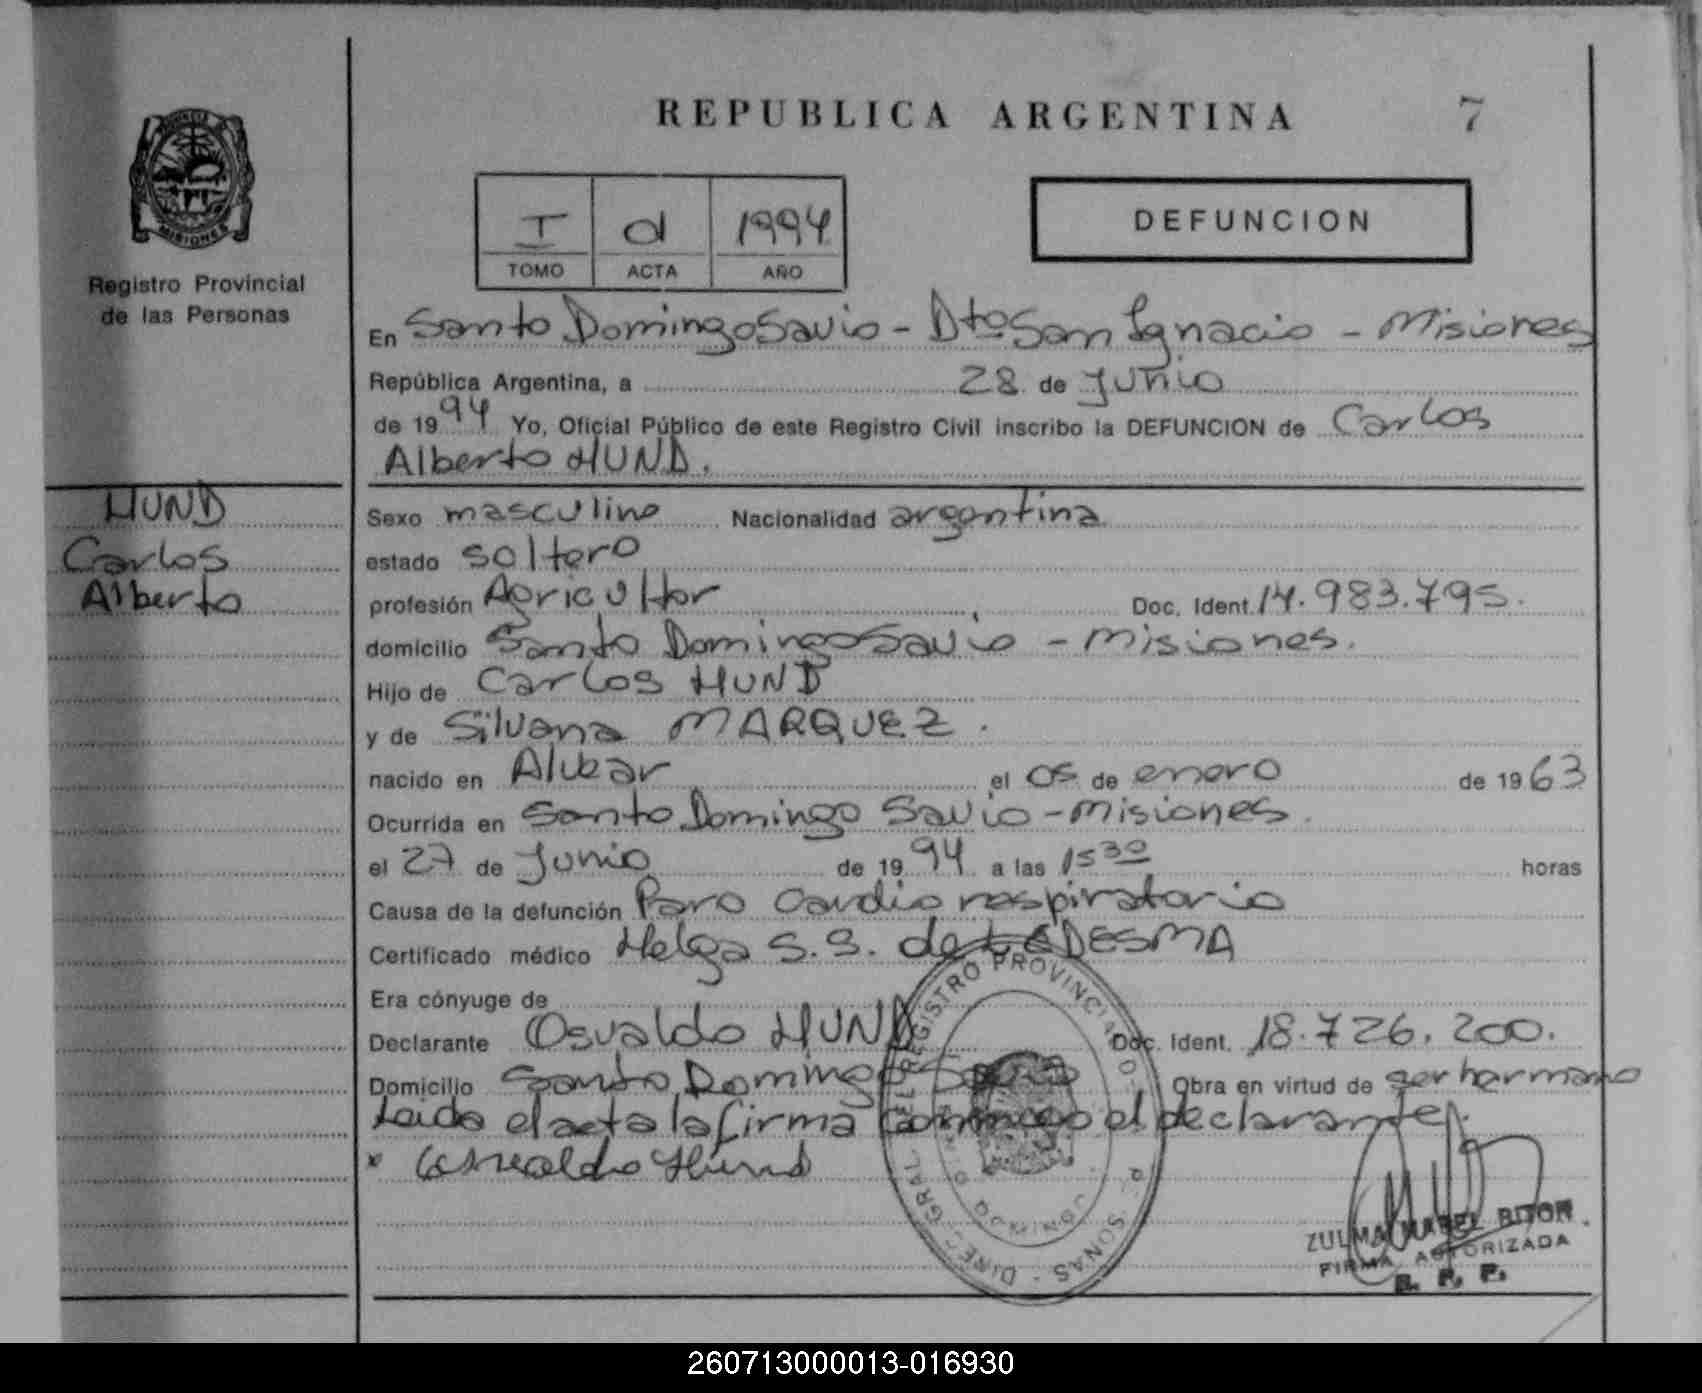 REPUBLICA ARGENTINA 7
PROVINCIA
MISIONES
Registro Provincial
de las Personas
I d 1994
TOMO ACTA AÑO
DEFUNCION
En Santo Domingo Savio - Dto San Ignacio - Misiones
República Argentina, a 28 de Junio
de 1994 Yo, Oficial Público de este Registro Civil inscribo la DEFUNCION de Carlos
Alberto HUND.
HUND
Carlos
Alberto
Sexo masculino Nacionalidad argentina
estado soltero
profesión Agricultor Doc. Ident. 14.983.795.
domicilio Santo Domingo Savio - Misiones.
Hijo de Carlos HUND
y de Silvana MARQUEZ.
nacido en Alvear el 05 de enero de 1963
Ocurrida en Santo Domingo Savio - Misiones.
el 27 de Junio de 1994 a las 15 30 horas
Causa de la defunción Paro Cardio respiratorio
Certificado médico Helga S. S. de LEDESMA
Era cónyuge de
Declarante Osvaldo HUND Doc. Ident. 18.726.200.
Domicilio Santo Domingo Savio Obra en virtud de ser hermano
Leida el acta la firma conmigo el declarante.
x Osvaldo Hund
REGISTRO PROVINCIAL DE
ZULMA MABEL BITOR
FIRMA AUTORIZADA
R. P. P.
260713000013-016930